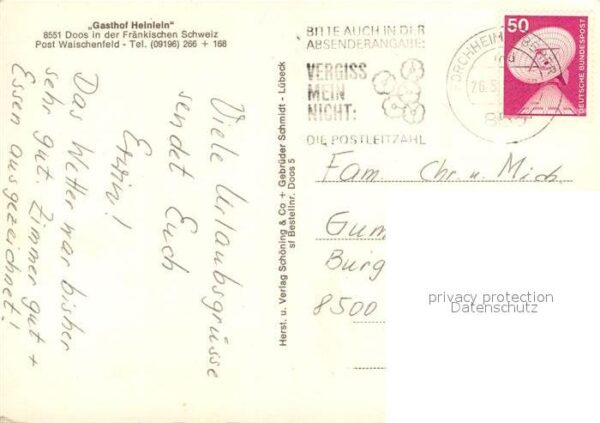 „Gasthof Heinlein"
8551 Doos in der Fränkischen Schweiz
Post Waischenfeld - Tel. (09196) 266 + 168
Viele Urlaubsgrüsse
sendet Euch
Erwin!
Das Wetter war bisher
sehr gut. Zimmer gut +
Essen ausgezeichnet!
Herst. u. Verlag Schöning & Co + Gebrüder Schmidt - Lübeck
sf Bestellnr. Doos 5
BITTE AUCH IN DER
ABSENDERANGABE:
VERGISS
MEIN
NICHT:
DIE POSTLEITZAHL
FORCHHEIM
50
DEUTSCHE BUNDESPOST
Fam. Chr. u. Mich.
Gum
Burg
8500
privacy protection
Datenschutz